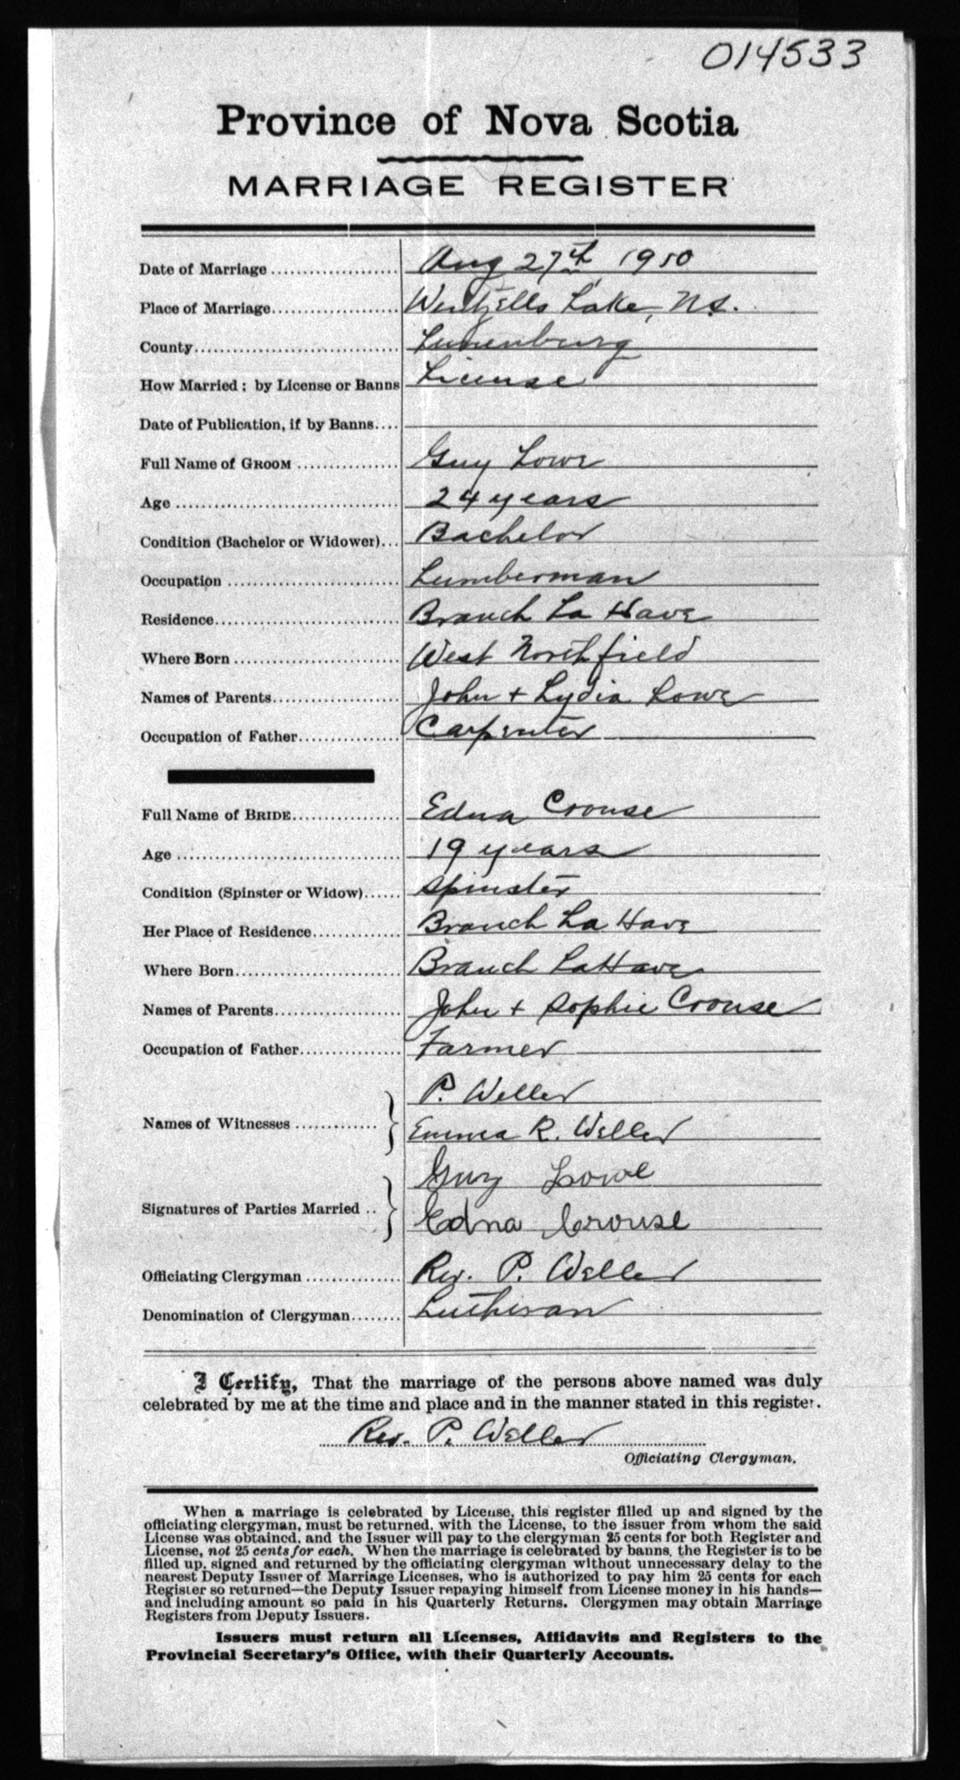 014533
Province of Nova Scotia
MARRIAGE REGISTER
Date of Marriage .................... Aug 27th, 1910
Place of Marriage.................... Wentzells Lake, N.S.
County................................ Lunenburg
How Married; by License or Banns License
Date of Publication, if by Banns....
Full Name of GROOM ................ Guy Lowe
Age ................................... 24 years
Condition (Bachelor or Widower)... Bachelor
Occupation ........................... Lumberman
Residence............................. Branch La Have
Where Born .......................... West Northfield
Names of Parents.................... John + Lydia Lowe
Occupation of Father................ Carpenter
Full Name of BRIDE.................. Edna Crouse
Age ................................... 19 years
Condition (Spinster or Widow)...... Spinster
Her Place of Residence.............. Branch La Have
Where Born.......................... Branch LaHave
Names of Parents.................... John + Sophie Crouse
Occupation of Father................ Farmer
P. Weller
Names of Witnesses ............. } Emma R. Weller
Guy Lowe
Signatures of Parties Married .. } Edna Crouse
Officiating Clergyman ............... Rev. P. Weller
Denomination of Clergyman........ Lutheran
I Certify, That the marriage of the persons above named was duly
celebrated by me at the time and place and in the manner stated in this register.
Rev. P. Weller
Officiating Clergyman.
When a marriage is celebrated by License, this register filled up and signed by the
officiating clergyman, must be returned, with the License, to the issuer from whom the said
License was obtained, and the Issuer will pay to the clergyman 25 cents for both Register and
License, not 25 cents for each. When the marriage is celebrated by banns, the Register is to be
filled up, signed and returned by the officiating clergyman without unnecessary delay to the
nearest Deputy Issuer of Marriage Licenses, who is authorized to pay him 25 cents for each
Register so returned—the Deputy Issuer repaying himself from License money in his hands—
and including amount so paid in his Quarterly Returns. Clergymen may obtain Marriage
Registers from Deputy Issuers.
Issuers must return all Licenses, Affidavits and Registers to the
Provincial Secretary's Office, with their Quarterly Accounts.